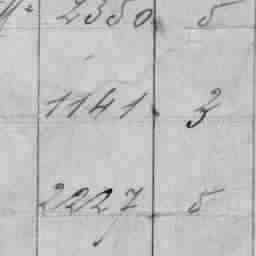 2350. 5
1141. 3
2227 5